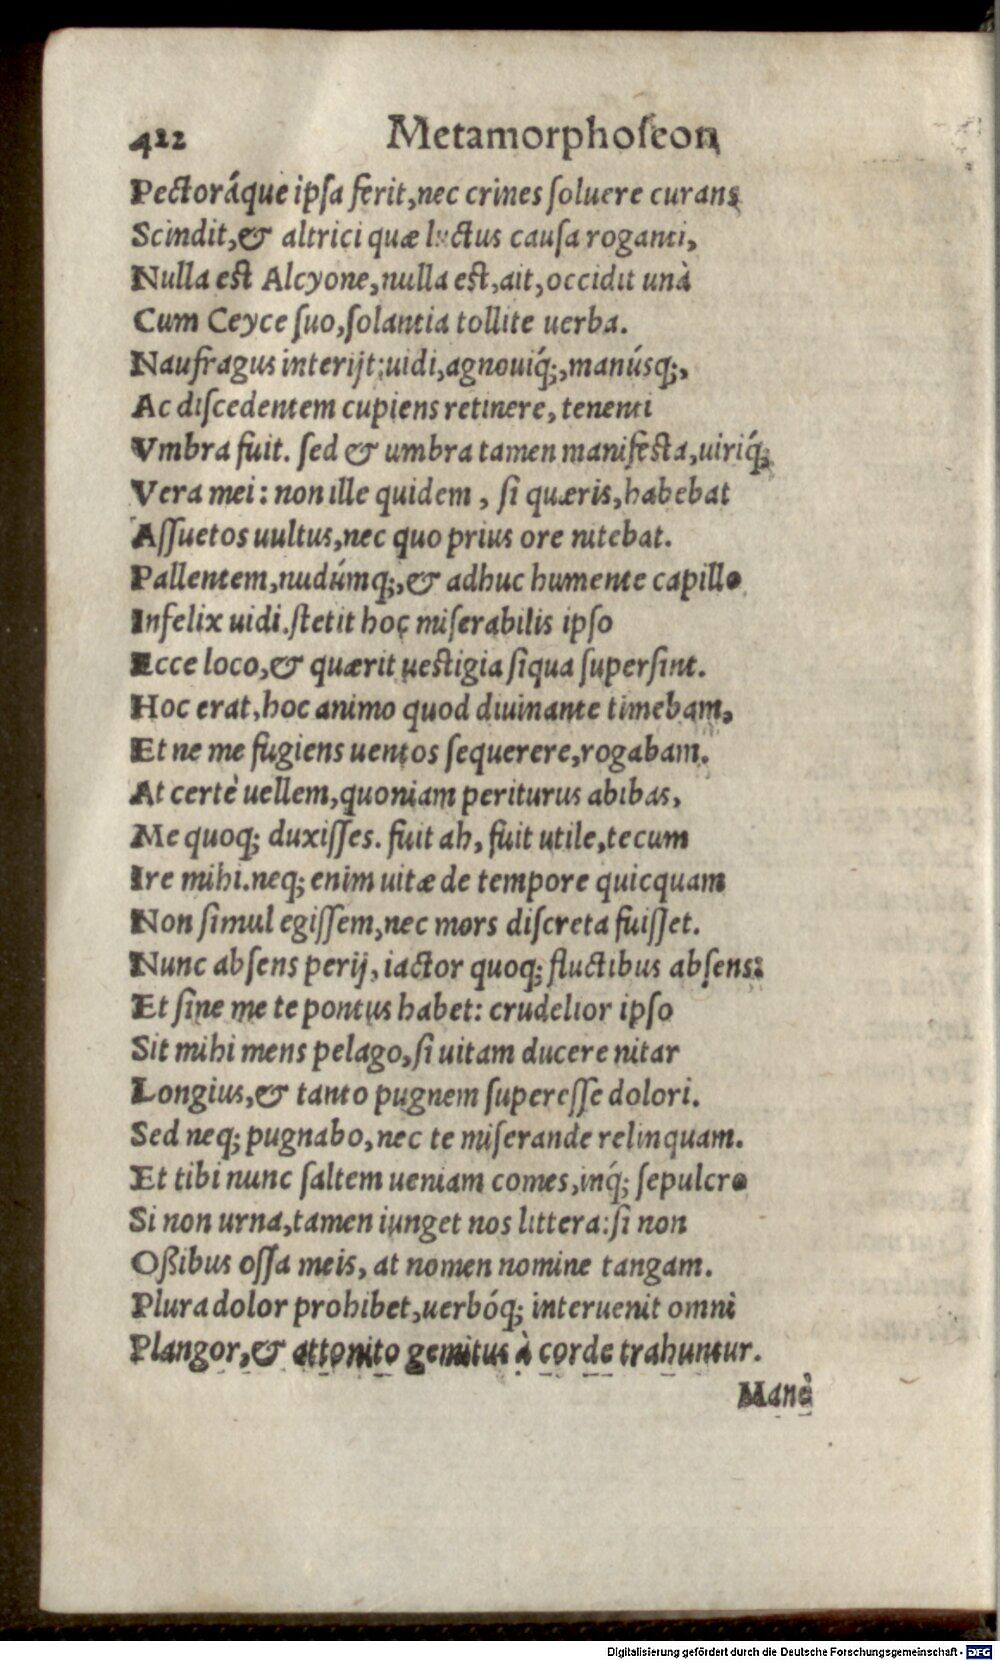 422 Metamorphoſeon
Pectoráque ipſa ferit, nec crines ſoluere curans
Scindit, & altrici quæ luctus cauſa roganti,
Nulla est Alcyone, nulla est, ait, occidit unà
Cum Ceyce ſuo, ſolantia tollite uerba.
Naufragus interijt: uidi, agnouiq́;, manúsq;,
Ac diſcedentem cupiens retinere, tenenti
Vmbra fuit. ſed & umbra tamen manifesta, uiriq́;
Vera mei: non ille quidem, ſi quæris, habebat
Aſſuetos uultus, nec quo prius ore nitebat.
Pallentem, nudúmq;, & adhuc humente capillo
Infelix uidi. ſtetit hoc miſerabilis ipſo
Ecce loco, & quærit uestigia ſiqua ſuperſint.
Hoc erat, hoc animo quod diuinante timebam,
Et ne me fugiens uentos ſequerere, rogabam.
At certè uellem, quoniam periturus abibas,
Me quoq; duxiſſes. fuit ah, fuit utile, tecum
Ire mihi. neq; enim uitæ de tempore quicquam
Non ſimul egiſſem, nec mors diſcreta fuiſſet.
Nunc abſens perij, iactor quoq; fluctibus abſens:
Et ſine me te pontus habet: crudelior ipſo
Sit mihi mens pelago, ſi uitam ducere nitar
Longius, & tanto pugnem ſupereſſe dolori.
Sed neq; pugnabo, nec te miſerande relinquam.
Et tibi nunc ſaltem ueniam comes, inq́; ſepulcro
Si non urna, tamen iunget nos littera: ſi non
Oßibus oſſa meis, at nomen nomine tangam.
Plura dolor prohibet, uerbóq; interuenit omni
Plangor, & attonito gemitus à corde trahuntur.
Manè
Digitalisierung gefördert durch die Deutsche Forschungsgemeinschaft - DFG